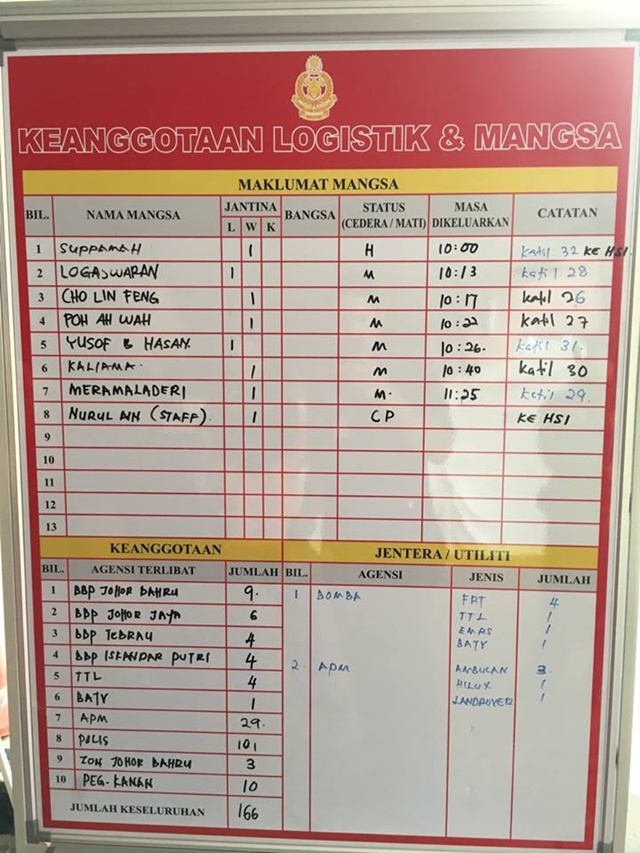 KEANGGOTAAN LOGISTIK & MANGSA
MAKLUMAT MANGSA
BIL. NAMA MANGSA JANTINA L W K BANGSA STATUS (CEDERA / MATI) MASA DIKELUARKAN CATATAN
1 SUPPAMAH 1 H 10:00 Katil 32 KE HSI.
2 LOGASWARAN 1 M 10:13 Katil 28
3 CHO LIN FENG 1 M 10:17 Katil 26
4 POH AH WAH 1 M 10:22 Katil 27
5 YUSOF B HASAN 1 M 10:26. Katil 31.
6 KALIAMA. 1 M 10:40 Katil 30
7 MERAMALADERI 1 M. 11:25 Katil 29.
8 NURUL AIN (STAFF). 1 CP KE HSI
9
10
11
12
13
KEANGGOTAAN
BIL. AGENSI TERLIBAT JUMLAH
1 BBP JOHOR BAHRU 9.
2 BBP JOHOR JAYA 6
3 BBP TEBRAU 4
4 BBP ISKANDAR PUTRI 4
5 TTL 4
6 BATV 1
7 APM 29.
8 POLIS 101
9 ZON JOHOR BAHRU 3
10 PEG. KANAN 10
JUMLAH KESELURUHAN 166
JENTERA / UTILITI
BIL. AGENSI JENIS JUMLAH
1 BOMBA FRT 4
TTL 1
EMRS 1
BATV 1
2. APM AMBULAN 3.
HILUX 1
LANDROVER 1